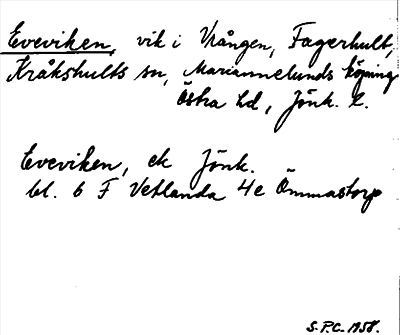 Eveviken, vik i Vrången, Fagerhult,
Kråkshults sn, Mariannelunds köping
Östra hd, Jönk. l.
Eveviken, ek Jönk.
bl. 6 F Vetlanda 4e Ömmastorp
S.P.C. 1958.